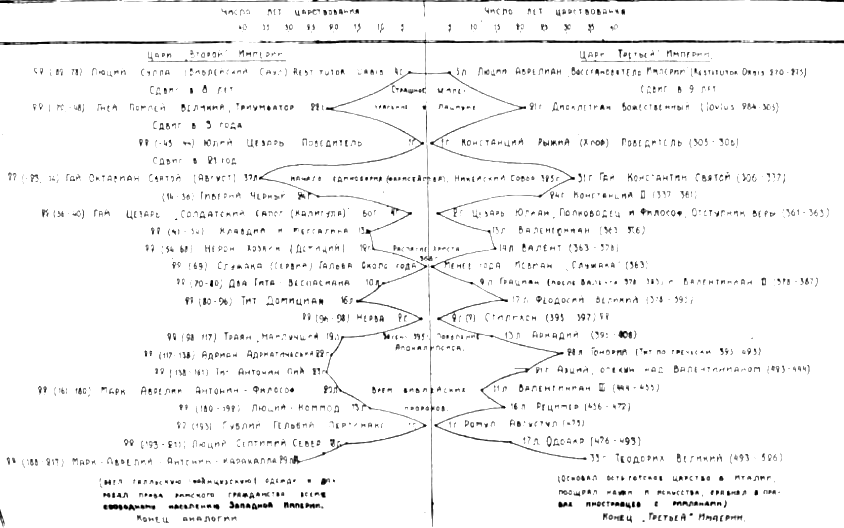 ЧИСЛО ЛЕТ ЦАРСТВОВАНИЯ ЧИСЛО ЛЕТ ЦАРСТВОВАНИЯ
40 35 30 25 20 15 10 5 5 10 15 20 25 30 35 40
ЦАРИ „ВТОРОЙ" ИМПЕРИИ ЦАРИ „ТРЕТЬЕЙ" ИМПЕРИИ.
ЛЮЦИЙ СУЛЛА (БИБЛЕЙСКИЙ САУЛ) RESTITUTOR URBIS 4Г. 5Л ЛЮЦИЙ АВРЕЛИАН ВОССТАНОВИТЕЛЬ ИМПЕРИИ (RESTITUTOR ORBIS 270-275)
СДВИГ В 8 ЛЕТ СТРАШНОЕ СДВИГ В 9 ЛЕТ
ГНЕЙ ПОМПЕЙ ВЕЛИКИЙ, ТРИУМФАТОР 22Г. В 21Г ДИОКЛЕТИАН БОЖЕСТВЕННЫЙ (JOVIUS 284-305)
СДВИГ В 3 ГОДА
ЮЛИЙ ЦЕЗАРЬ ПОБЕДИТЕЛЬ 1Г 1Г. КОНСТАНЦИЙ РЫЖИЙ (ХЛОР) ПОБЕДИТЕЛЬ (305-306)
СДВИГ В 21 ГОД
ГАЙ ОКТАВИАН СВЯТОЙ (АВГУСТ) 37Л НАЧАЛО ЕДИНОВЕРИЯ НИКЕЙСКИЙ СОБОР 325Г 31Г ГАЙ КОНСТАНТИН СВЯТОЙ (306-337)
ТИВЕРИЙ ЧЕРНЫЙ 24Г КОНСТАНЦИЙ II (337-361)
ГАЙ ЦЕЗАРЬ „СОЛДАТСКИЙ САПОГ (КАЛИГУЛА)" БОГ 4Г 2Г ЦЕЗАРЬ ЮЛИАН, ПОЛКОВОДЕЦ И ФИЛОСОФ, ОТСТУПНИК ВЕРЫ (361-363)
(41-54) КЛАВДИЙ И МЕССАЛИНА 13Л ВАЛЕНТИНИАН
(54-68) НЕРОН ХОЗЯИН РАСПЯТИЕ ХРИСТА 14Л ВАЛЕНТ
(69) СЛУЖАКА (СЕРВИЙ) ГАЛЬБА ОКОЛО ГОДА 368Г МЕНЕЕ ГОДА ИОВИАН „СЛУЖАКА" (363)
(70-80) ДВА ТИТА-ВЕСПАСИАНА 10Л ГРАЦИАН (ПОСЛЕ ВАЛЕНТА И ВАЛЕНТИНИАН II
(80-96) ТИТ ДОМИЦИАН 16Л 17Л ФЕОДОСИЙ ВЕЛИКИЙ
(96-98) НЕРВА 2Г (?) СТИЛИХОН (395-397)
(98-117) ТРАЯН „НАИЛУЧШИЙ 19Л 395Г ПОЯВЛЕНИЕ 13Л АРКАДИЙ (395-408)
(117-138) АДРИАН АДРИАТИЧЕСКИЙ АПОКАЛИПСИСА. 28Л ГОНОРИЙ (ТИТ ПО ГРЕЧЕСКИ
(138-161) ТИТ АНТОНИН ПИЙ 23Г 21Г АЭЦИЙ, ОПЕКУН НАД ВАЛЕНТИНИАНОМ
(161-180) МАРК АВРЕЛИЙ АНТОНИН-ФИЛОСОФ ВРЕМЯ БИБЛЕЙСКИХ 11Л ВАЛЕНТИНИАН III (444-455)
ЛЮЦИЙ-КОММОД ПРОРОКОВ. 16Л РЕЦИМЕР (456-472)
(193) ПУБЛИЙ ГЕЛЬВИЙ ПЕРТИНАКС 1Г 1Г РОМУЛ АВГУСТУЛ (475)
(193-211) ЛЮЦИЙ СЕПТИМИЙ СЕВЕР 17Л ОДОАКР (476-493)
(188-217) МАРК-АВРЕЛИЙ-АНТОНИН-КАРАКАЛЛА 33Г ТЕОДОРИХ ВЕЛИКИЙ (493-526)
(ВВЕЛ ГАЛЛЬСКУЮ (ФРАНЦУЗСКУЮ) ОДЕЖДУ И (ОСНОВАЛ ОСТГОТСКОЕ ЦАРСТВО В ИТАЛИИ,
ПРАВА РИМСКОГО ГРАЖДАНСТВА ВСЕМУ ПООЩРЯЛ НАУКИ И ИСКУССТВА, СРАВНЯЛ В ПРА-
СВОБОДНОМУ НАСЕЛЕНИЮ ЗАПАДНОЙ ИМПЕРИИ. ВАХ ИНОСТРАНЦЕВ С РИМЛЯНАМИ)
КОНЕЦ АНАЛОГИИ КОНЕЦ „ТРЕТЬЕЙ" ИМПЕРИИ.